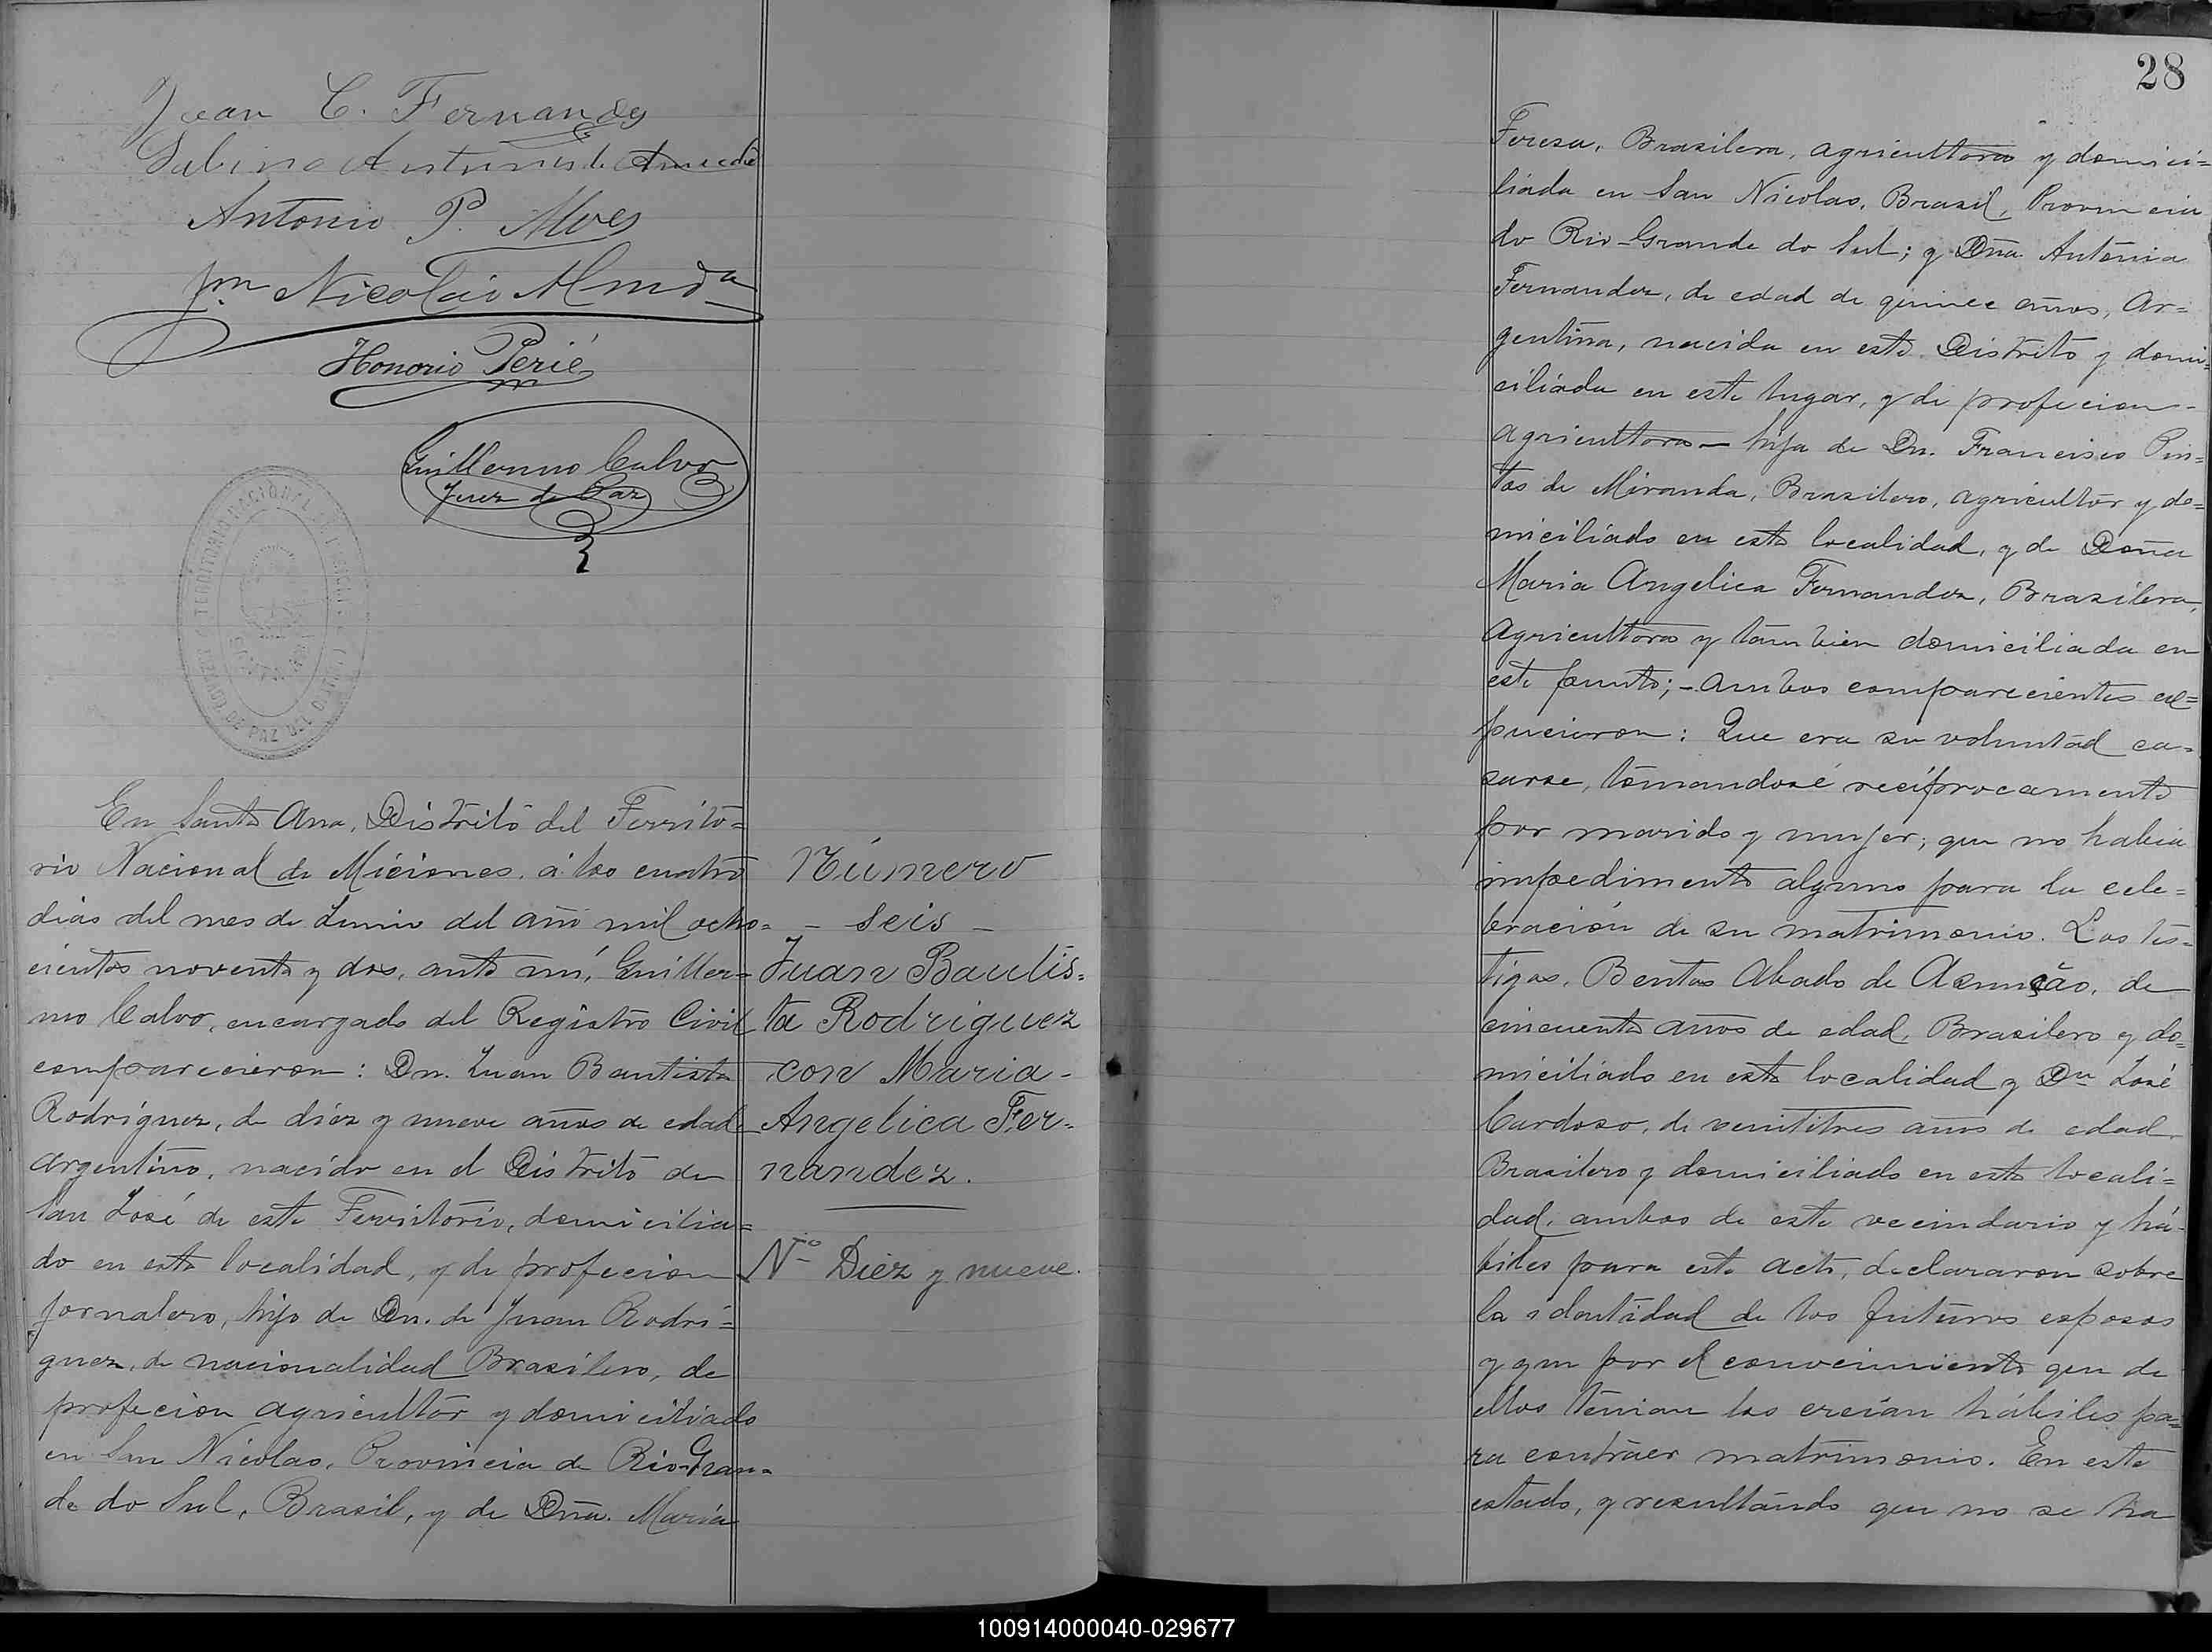 Juan C. Fernandez
Antonio P. Alves
Honorio Perié
Guillermo Calvo
Juez de Paz
TERRITORIO NACIONAL
JUZGADO DE PAZ DEL
En Santa Ana, Distrito del Territo=
rio Nacional de Miciones, á los cuatro
dias del mes de Junio del año mil ocho=
cientos noventa y dos, ante mí, Guiller=
mo Calvo, encargado del Registro Civil
comparecieron: Dn. Juan Bautista
Rodríguez, de díez y nueve años de edad
argentino, nacido en el Distrito de
San José de este Territorio, domicilia=
do en esta localidad, y de profecion
jornalero, hijo de Dn. de Juan Rodrí=
guez, de nacionalidad Brasilero, de
profecion agricultor y domiciliado
en San Nicolas, Provincia de Rio-Gran=
de do Sul, Brasil, y de Dña. María
Número
- seis -
Juan Bautis=
ta Rodriguez
con Maria-
Angelica Fer-
nandez.
No Diez y nueve.
28
Teresa, Brasilera, agricultora y domici=
liada en San Nicolas, Brasil, Provincia
do Rio-Grande do Sul; y Dña. Antónia
Fernandez, de edad de quince años, Ar=
gentina, nacida en este Distrito y domi=
ciliada en este lugar, y de profecion-
agricultora- hija de Dn. Francisco Pin=
tos de Miranda, Brasilero, agricultor y do=
miciliado en esta localidad, y de Doña
Maria Angelica Fernandez, Brasilera,
Agricultora y tambien domiciliada en
este punto; - ambos comparecientes es=
pucieron: Que era su voluntad ca=
sarse, tomandosé recíprocamente
por marido y mujer; que no habia
impedimento alguno para la cele=
bración de su matrimonio. Los tes=
tigos, Bentos Abado de Asunção, de
cincuenta años de edad, Brasilero y do=
miciliado en esta localidad y Dn José
Cardoso, de veintitres años de edad,
Brasilero y domiciliado en esta locali=
dad, ambos de este vecindario y há-
biles para este acto, declararon sobre
la identidad de los futuros esposos
y que por el conocimiento que de
ellos tenian los creían hábiles pa=
ra contraer matrimonio. En este
estado, y resultando que no se ha
100914000040-029677